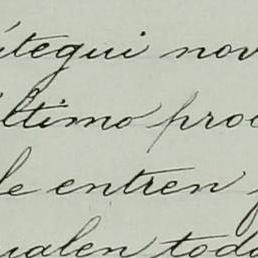 ítegui nov
último proc
le entren
ualen toda